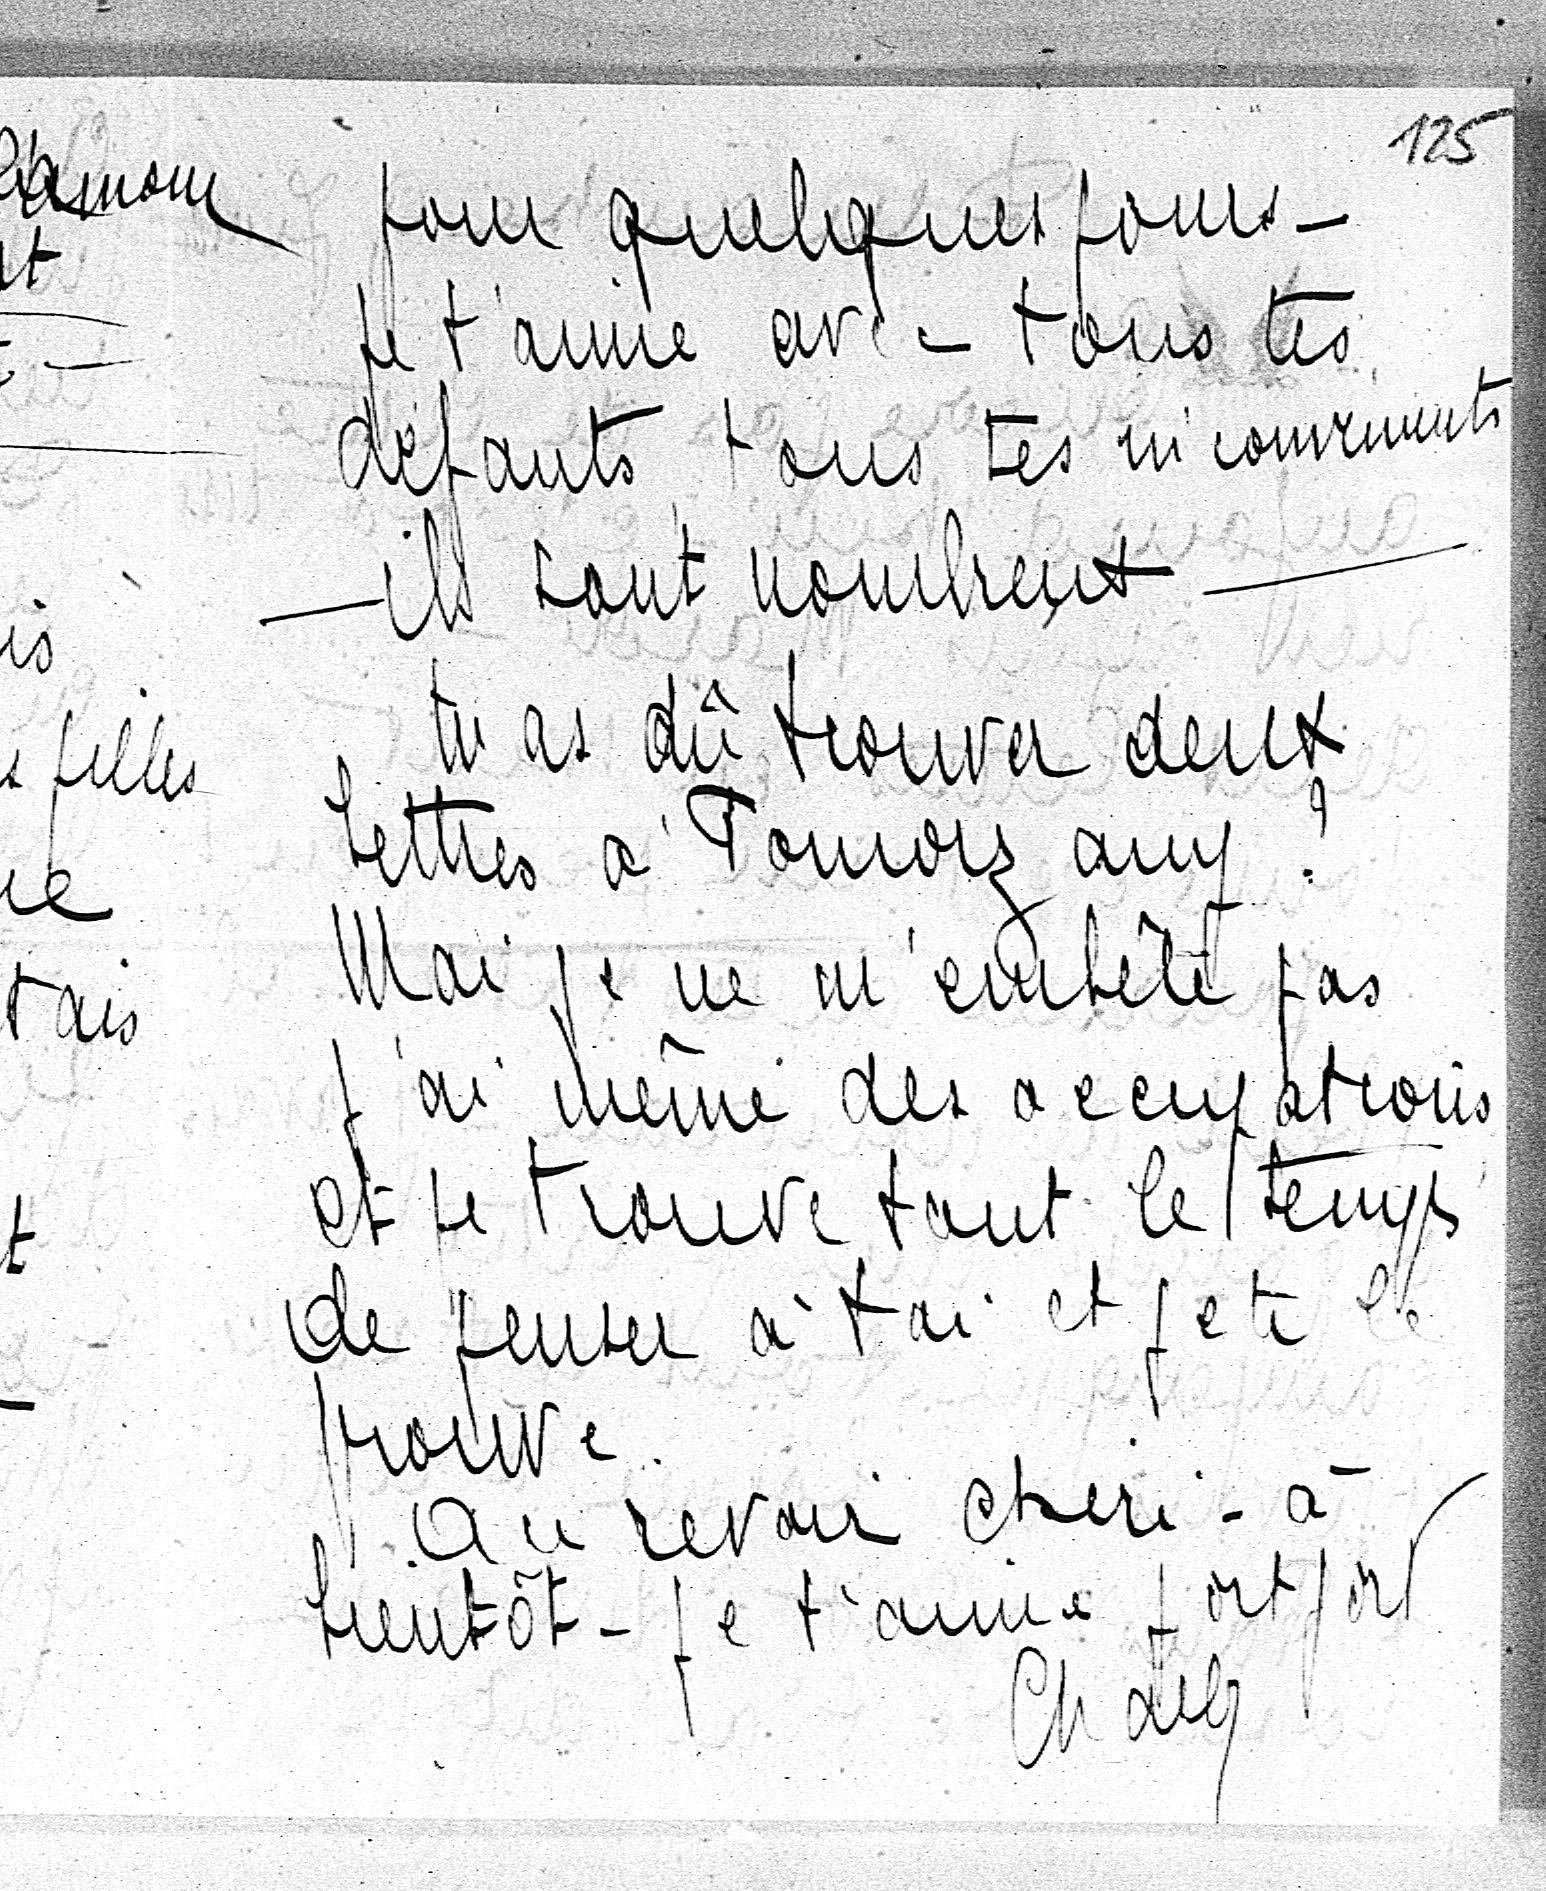 125
pour quelques jours –
je t'aime avec – tous tes
défauts tous tes inconvénients
– ils sont nombreux –
tu as dû trouver deux
lettres à ?
Moi je ne m'embête pas
j'ai même des occupations
et je trouve tout le temps
de penser à toi et je te le
prouve.
Au revoir chéri - à
bientôt - je t'aime fort fort
filles
tais